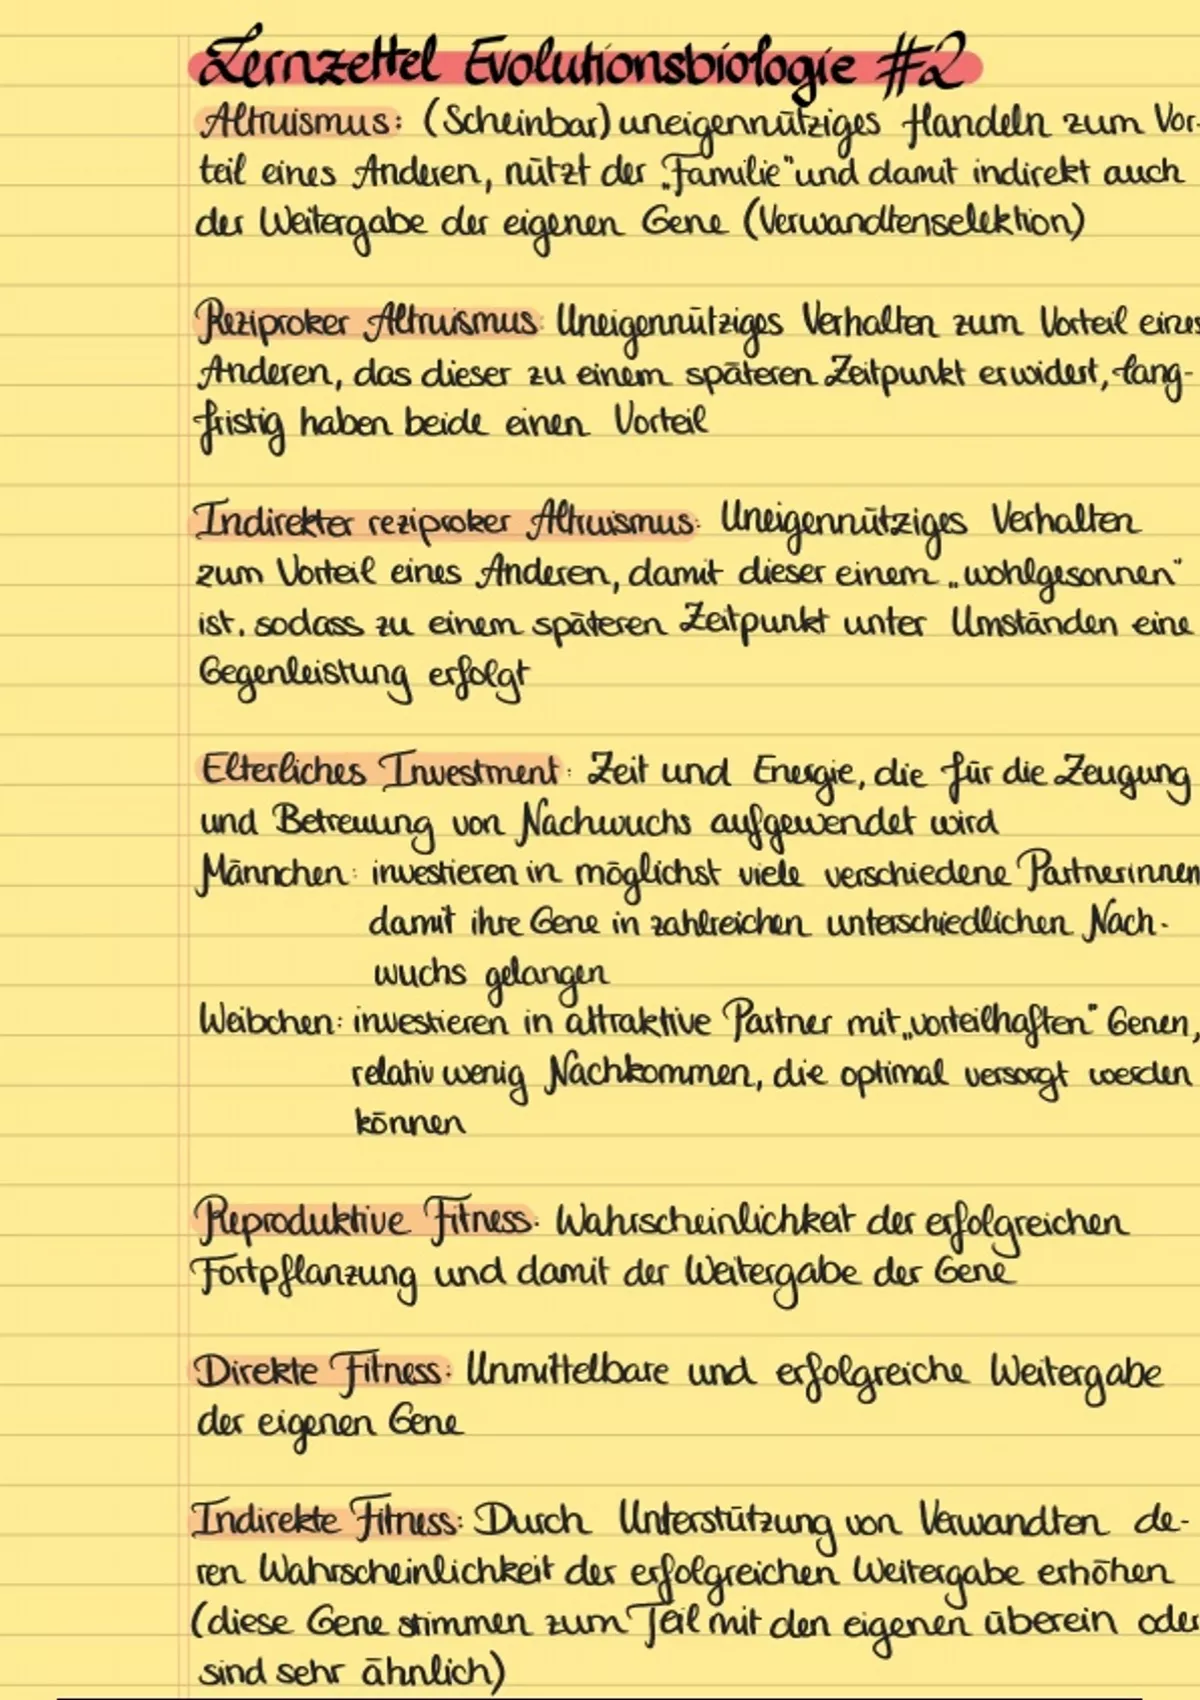 Lernzettel Evolutionsbiologie #2
Altruismus: (Scheinbar) uneigennütziges Handeln zum Vor-
teil eines Anderen, nützt der „Familie" und damit indirekt auch
der Weitergabe der eigenen Gene (Verwandtenselektion)
Reziproker Altruismus: Uneigennütziges Verhalten zum Vorteil eines
Anderen, das dieser zu einem späteren Zeitpunkt erwidert, lang-
fristig haben beide einen Vorteil
Indirekter reziproker Altruismus: Uneigennütziges Verhalten
zum Vorteil eines Anderen, damit dieser einem „wohlgesonnen"
ist, sodass zu einem späteren Zeitpunkt unter Umständen eine
Gegenleistung erfolgt
Elterliches Investment: Zeit und Energie, die für die Zeugung
und Betreuung von Nachwuchs aufgewendet wird
Männchen: investieren in möglichst viele verschiedene Partnerinnen
damit ihre Gene in zahlreichen unterschiedlichen Nach-
wuchs gelangen
Weibchen: investieren in attraktive Partner mit „vorteilhaften" Genen,
relativ wenig Nachkommen, die optimal versorgt werden
können
Reproduktive Fitness: Wahrscheinlichkeit der erfolgreichen
Fortpflanzung und damit der Weitergabe der Gene
Direkte Fitness: Unmittelbare und erfolgreiche Weitergabe
der eigenen Gene
Indirekte Fitness: Durch Unterstützung von Verwandten de-
ren Wahrscheinlichkeit der erfolgreichen Weitergabe erhöhen
(diese Gene stimmen zum Teil mit den eigenen überein oder
sind sehr ähnlich)